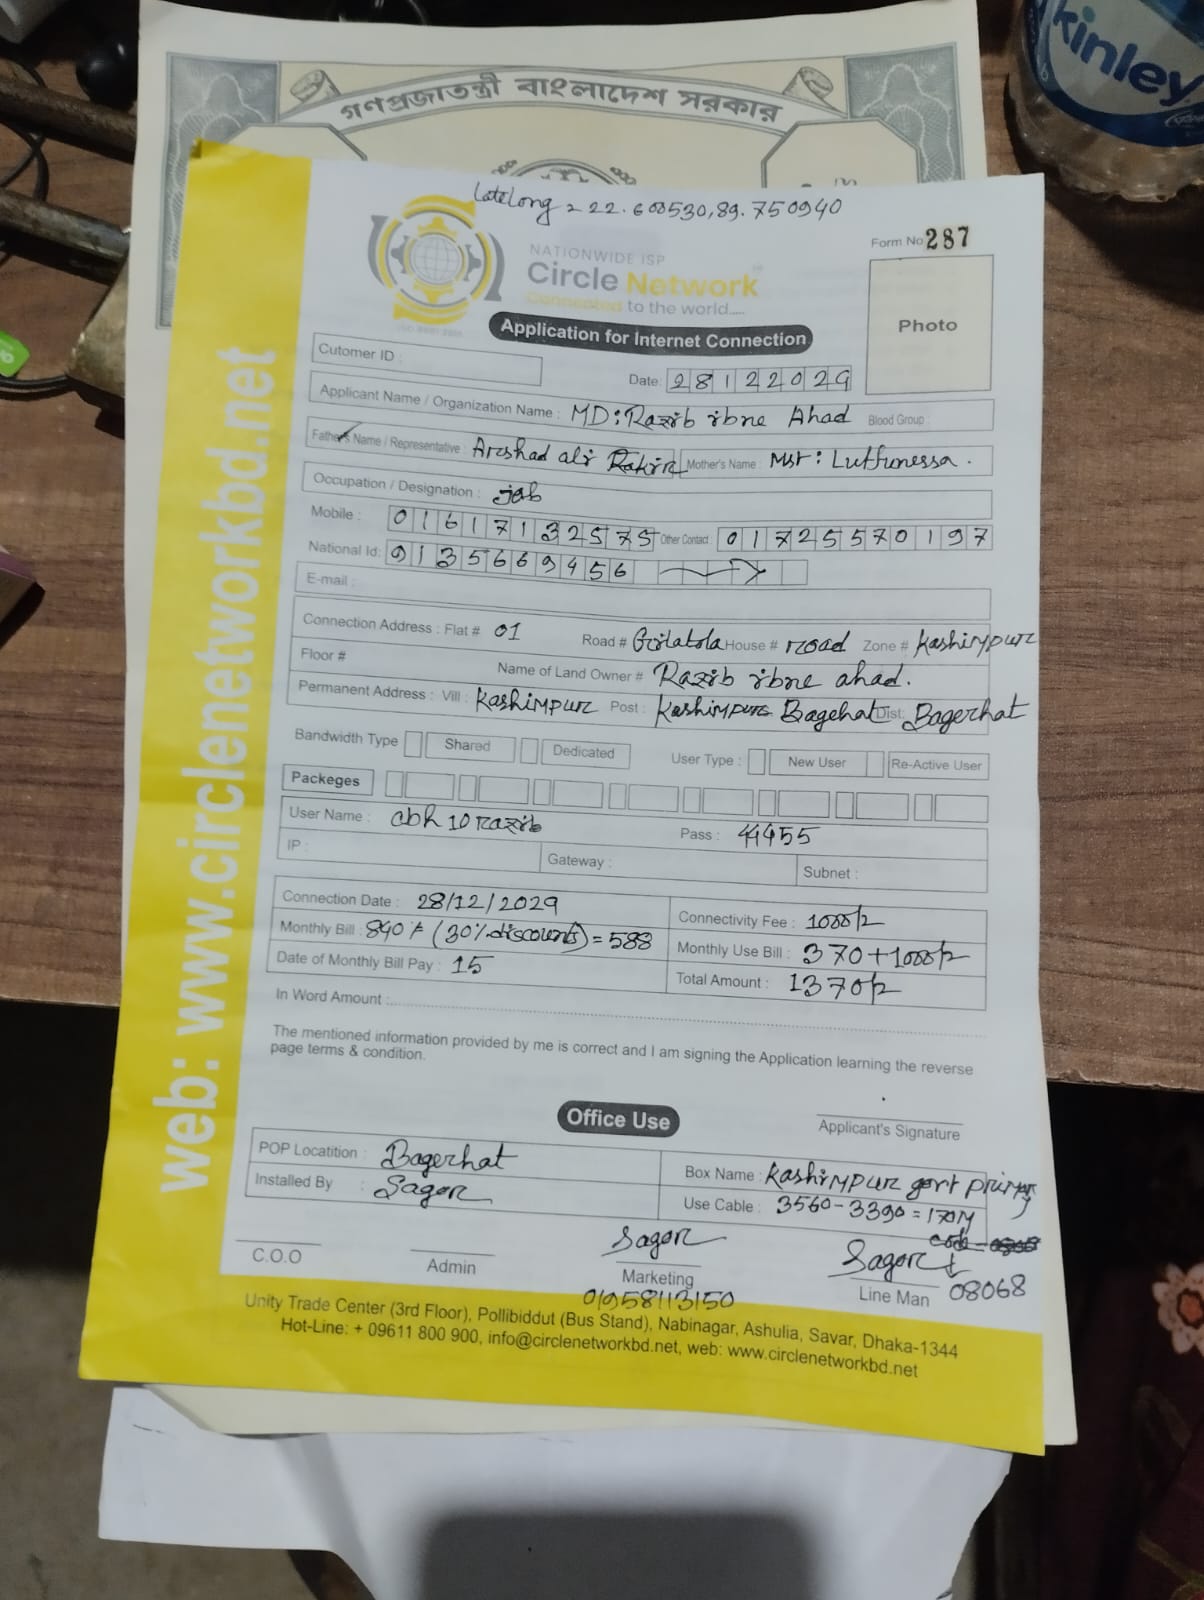 kinley
গণপ্রজাতন্ত্রী বাংলাদেশ সরকার
Form No 287
NATIONWIDE ISP
Circle Network
Connected to the world.....
Application for Internet Connection
Photo
Cutomer ID :
Date: 28122029
Applicant Name / Organization Name : MD: Razib ibne Ahad Blood Group :
Father's Name / Representative : Arshad ali Mother's Name : Mst: Lutfunessa.
Occupation / Designation : job
Mobile : 01617132575 Other Contact : 01725570197
National Id: 9135669456
E-mail :
Connection Address : Flat # 01 Road # Golatola House # road Zone # Kashimpur
Floor # Name of Land Owner # Razib ibne ahad.
Permanent Address : Vill : Kashimpur Post : Kashimpur Bagehat Dist: Bagerhat
Bandwidth Type Shared Dedicated User Type : New User Re-Active User
Packeges
User Name : cbh10razib Pass : 44455
IP : Gateway : Subnet :
Connection Date : 28/12/2029 Connectivity Fee : 1000/=
Monthly Bill : 840/= (30% discounts) = 588 Monthly Use Bill : 370+1000/=
Date of Monthly Bill Pay : 15 Total Amount : 1370/=
In Word Amount :
The mentioned information provided by me is correct and I am signing the Application learning the reverse
page terms & condition.
Applicant's Signature
Office Use
POP Locatition : Bagerhat Box Name : Kashimpur govt primary
Installed By : Sagor Use Cable : 3560-3390=170M
Sagor Sagor
C.O.O Admin Marketing Line Man 08068
01958113150
Unity Trade Center (3rd Floor), Pollibiddut (Bus Stand), Nabinagar, Ashulia, Savar, Dhaka-1344
Hot-Line: + 09611 800 900, info@circlenetworkbd.net, web: www.circlenetworkbd.net
web: www.circlenetworkbd.net